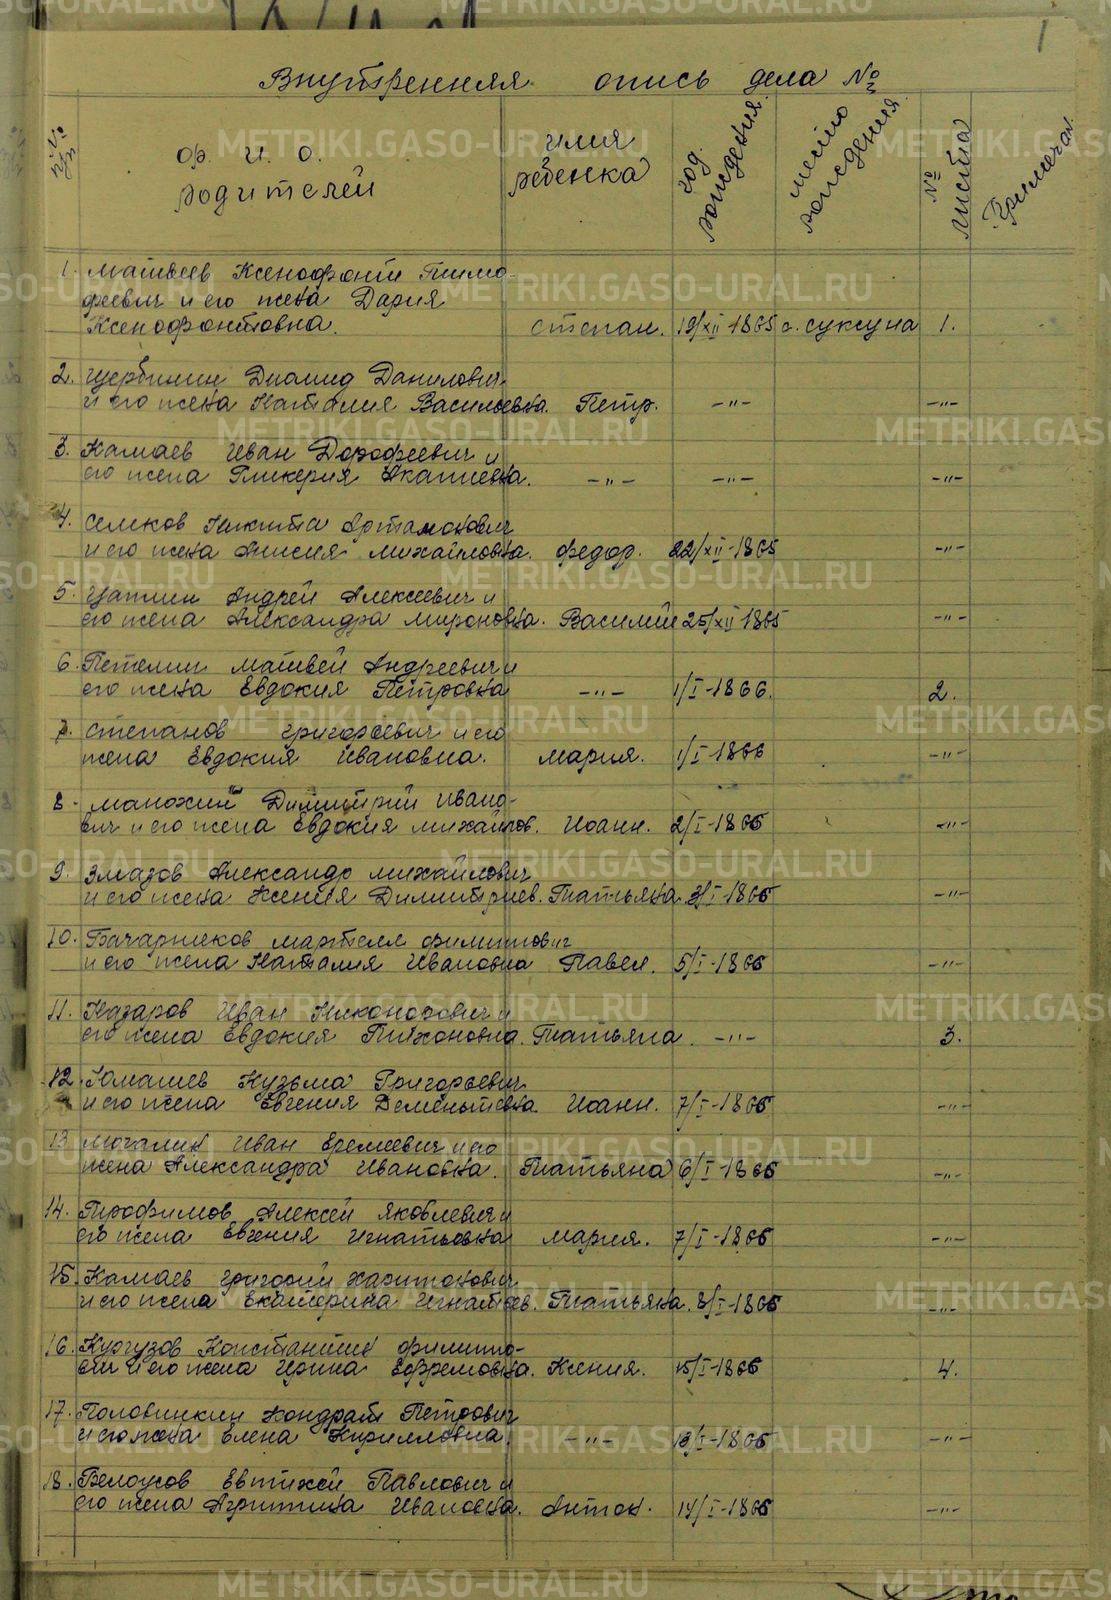 1
Внутренняя опись дела №
№ п/п
ф. и. о. родителей
имя ребенка
год рождения
место рождения
№ листа
Примечан.
1. Матвеев Ксенофонт Тимо-
феевич и его жена Дария
Ксенофонтовна. Степан. 19/XII 1865 с. Суксуна 1.
2. Щербинин Диомид Данилович
и его жена Наталия Васильевна. Петр. -"- -"-
3. Камаев Иван Дорофеевич и
его жена Гликерия Екатиевна. -"- -"- -"-
4. Семков Никита Артамонович
и его жена Анисия Михайловна. Федор. 22/XII-1865 -"-
5. Цаплин Андрей Алексеевич и
его жена Александра Мироновна. Василий 25/XII 1865 -"-
6. Петелин Матвей Андреевич и
его жена Евдокия Петровна -"- 1/I-1866. 2.
7. Степанов Григорьевич и его
жена Евдокия Ивановна. Мария. 1/I-1866 -"-
8. Манохин Димитрий Ивано-
вич и его жена Евдокия Михайлов. Иоанн. 2/I-1866 -"-
9. Змазов Александр Михайлович
и его жена Ксения Димитриев. Татьяна. 3/I-1866 -"-
10. Бочарников Мартемя Филиппович
и его жена Наталия Ивановна Павел. 5/I-1866 -"-
11. Назаров Иван Никонорович и
его жена Евдокия Тихоновна. Татьяна. -"- 3.
12. Юмашев Кузьма Григорьевич
и его жена Евгения Дементьевна. Иоанн. 7/I-1866 -"-
13 Мочалин Иван Еремеевич и его
жена Александра Ивановна. Татьяна 6/I-1866 -"-
14. Трофимов Алексей Яковлевич и
его жена Евгения Игнатьевна Мария. 7/I-1866 -"-
15. Камаев Григорий Харитонович
и его жена Екатерина Игнатьев. Татьяна. 8/I-1866 -"-
16. Кургузов Константин Филиппо-
вич и его жена Ирина Ефремовна. Ксения. 15/I-1866 4.
17. Половинкин Кондрат Петрович
и его жена Елена Кирилловна. -"- 13/I-1866 -"-
18. Белоусов Евтихей Павлович и
его жена Агриппина Ивановна. Антон. 14/I-1866 -"-
METRIKI.GASO-URAL.RU